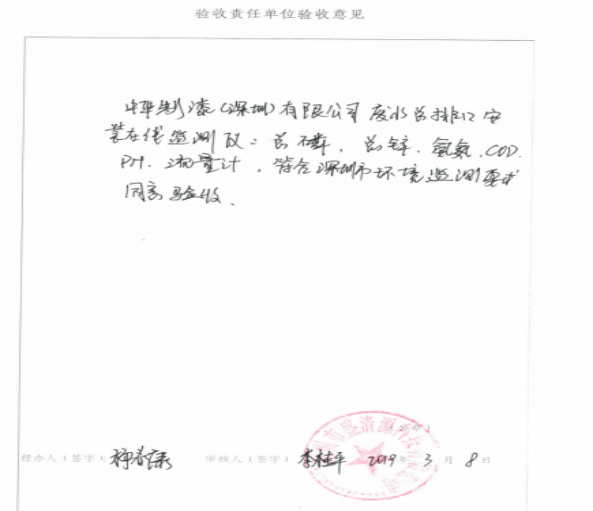 验收责任单位验收意见
中华制漆(深圳)有限公司废水总排口安
装在线监测仪:总磷、总锌、氨氮、COD、
PH、流量计,符合深圳市环境监测要求
同意验收.
经办人(签字) 审核人(签字) 李桂平 2019年3月8日